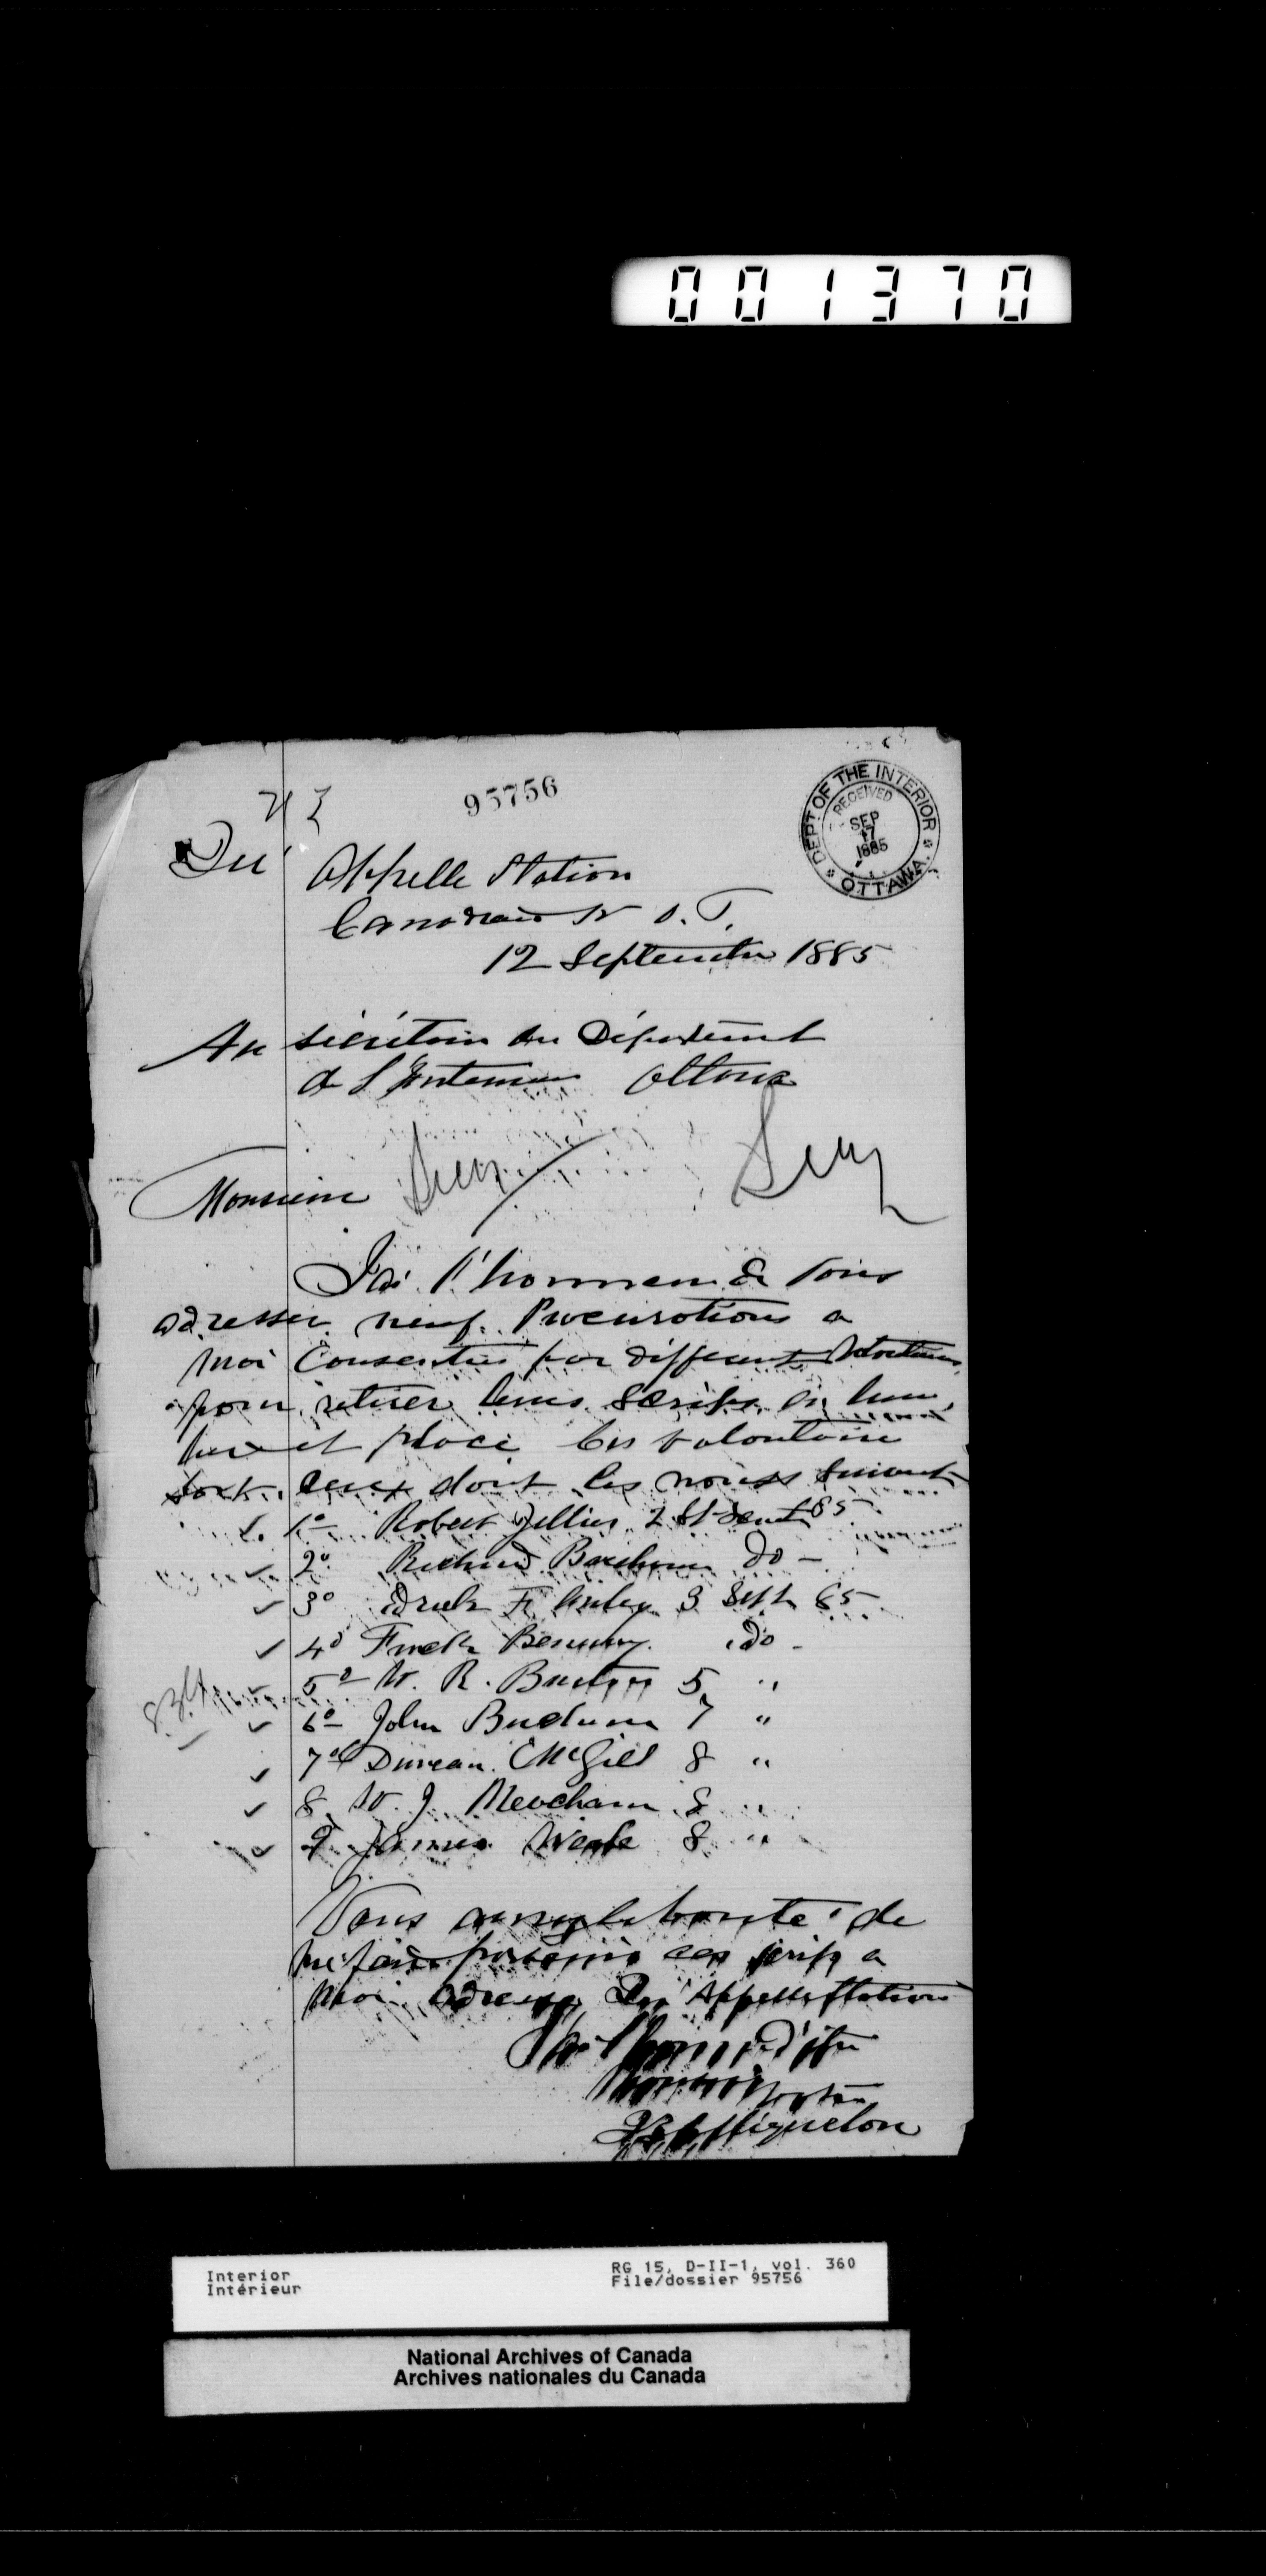 001370
95756
DEPT OF THE INTERIOR
RECEIVED
SEP
17
1885
OTTAWA.
Qu'Appelle Station
Canadian N. O. T.
12 Septembre 1885
Au Sécrétaire du Département
de L'Interieur Ottawa
Monsieur
J'ai l'honneur de vous
adresser neuf Procurations a
moi Consenties par different Volontaires
pour retirer leurs scrips en leur
lieu et place les volontaire
sont ceux dont les noms suivent
1º Robert Jellies 2 Sept 85
2º Richard do -
3º 3 Sept 85
4º Fredk do -
5º W. R. 5 "
6º John 7 "
7º Duncan McGill 8 "
8 W. J. Meacham 8 "
9 James 8 "
Vous aurez la bonté de
me faire parvenir ces scrips a
mon adresse Qu'Appelle Station
J'ai l'honneur d'être
Interior
Intérieur
RG 15, D-II-1, vol. 360
File/dossier 95756
National Archives of Canada
Archives nationales du Canada